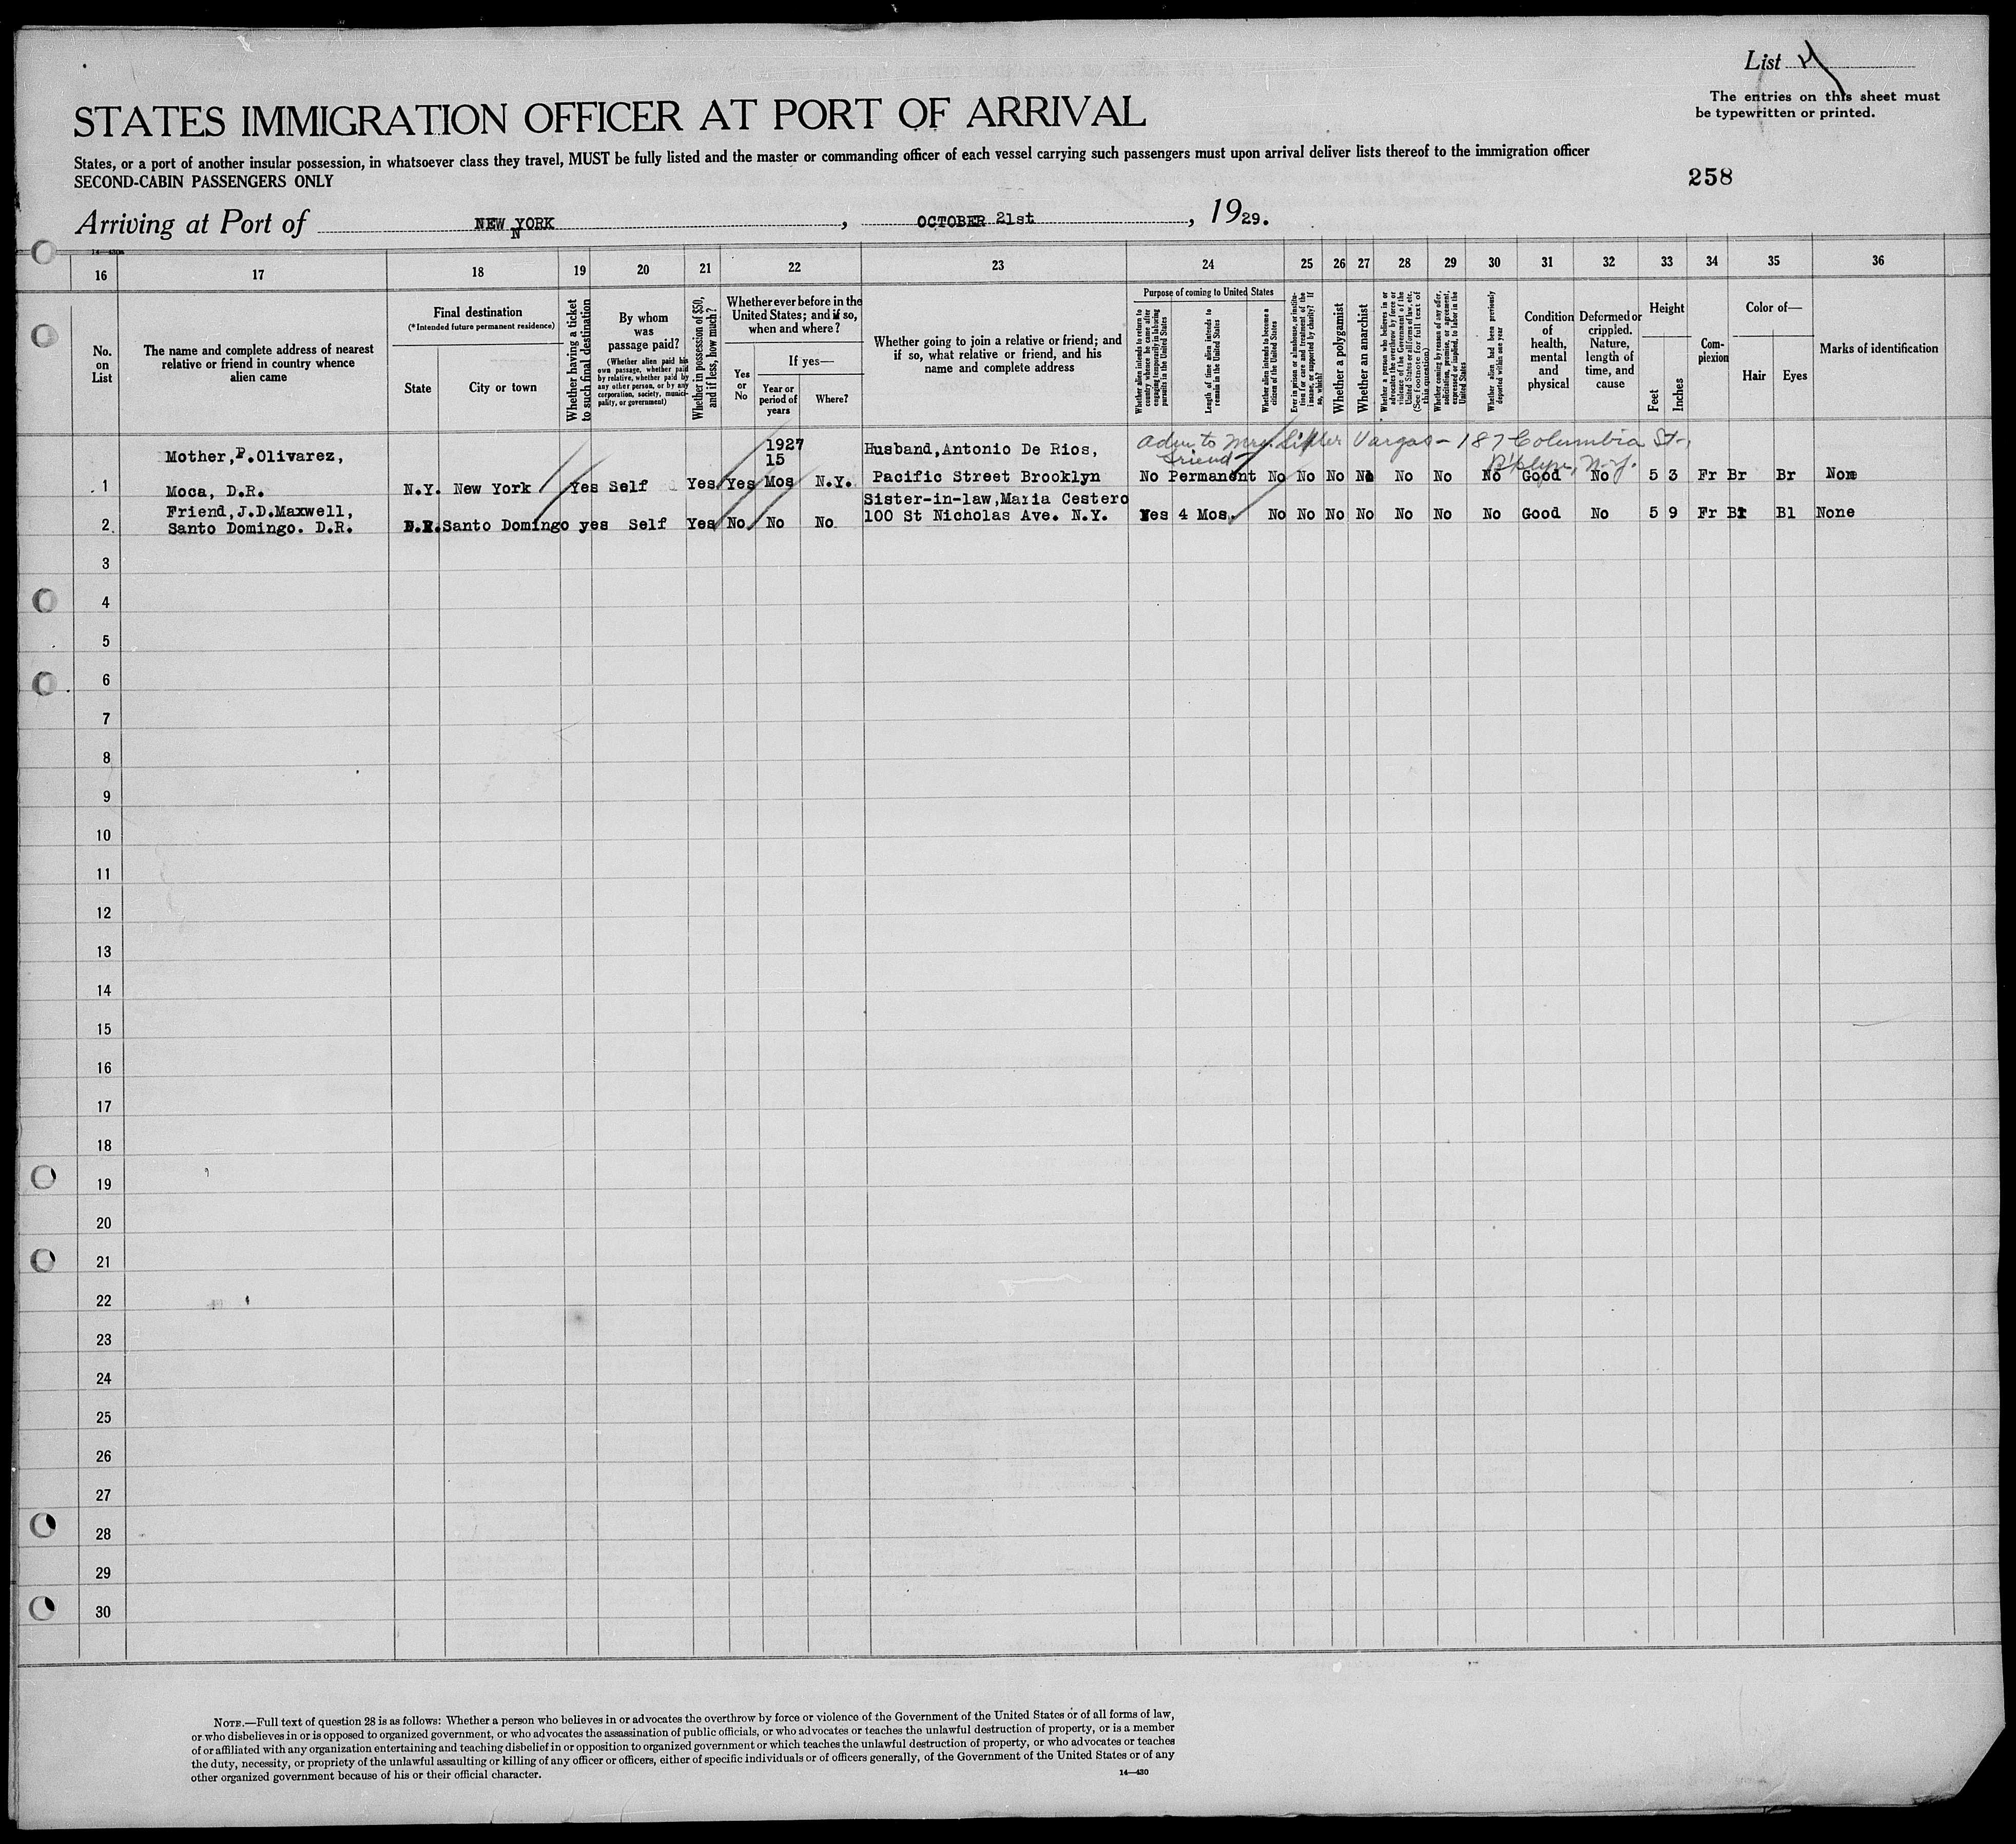 List
The entries on this sheet must
be typewritten or printed.
STATES IMMIGRATION OFFICER AT PORT OF ARRIVAL
States, or a port of another insular possession, in whatsoever class they travel, MUST be fully listed and the master or commanding officer of each vessel carrying such passengers must upon arrival deliver lists thereof to the immigration officer
SECOND-CABIN PASSENGERS ONLY
258
Arriving at Port of NEW YORK, OCTOBER 21st, 1929.
16 17 18 19 20 21 22 23 24 25 26 27 28 29 30 31 32 33 34 35 36
No.
on
List
The name and complete address of nearest
relative or friend in country whence
alien came
Final destination
(*Intended future permanent residence)
State
City or town
Whether having a ticket
to such final destination
By whom
was
passage paid?
(Whether alien paid his
own passage, whether paid
by relative, whether paid by
any other person, or by any
corporation, society, munici-
pality, or government)
Whether in possession of $50,
and if less, how much?
Whether ever before in the
United States; and if so,
when and where?
Yes
or
No
If yes—
Year or
period of
years
Where?
Whether going to join a relative or friend; and
if so, what relative or friend, and his
name and complete address
Purpose of coming to United States
Whether alien intends to return to
country whence he came after
engaging temporarily in laboring
pursuits in the United States
Length of time alien intends to
remain in the United States
Whether alien intends to become a
citizen of the United States
Ever in prison or almshouse, or institu-
tion for care and treatment of the
insane, or supported by charity? If
so, which?
Whether a polygamist
Whether an anarchist
Whether a person who believes in or
advocates the overthrow by force or
violence of the Government of the
United States or all forms of law, etc.
(See footnote for full text of
this question)
Whether coming by reason of any offer,
solicitation, promise, or agreement,
expressed or implied, to labor in the
United States
Whether alien had been previously
deported within one year
Condition
of
health,
mental
and
physical
Deformed or
crippled.
Nature,
length of
time, and
cause
Height
Feet
Inches
Com-
plexion
Color of—
Hair
Eyes
Marks of identification
Mother, P. Olivarez, 1927 Husband, Antonio De Rios, Adm to Mrs. Vargas - 187 Columbia St.,
15 friend B'klyn, N.Y.
1 Moca, D.R. N.Y. New York Yes Self Yes Yes Mos N.Y. Pacific Street Brooklyn No Permanent No No No No No No No Good No 5 3 Fr Br Br None
Friend, J.D.Maxwell, Sister-in-law, Maria Cestero
2 Santo Domingo. D.R. Santo Domingo yes Self Yes No No No 100 St Nicholas Ave. N.Y. Yes 4 Mos. No No No No No No No Good No 5 9 Fr Bl None
3
4
5
6
7
8
9
10
11
12
13
14
15
16
17
18
19
20
21
22
23
24
25
26
27
28
29
30
NOTE.—Full text of question 28 is as follows: Whether a person who believes in or advocates the overthrow by force or violence of the Government of the United States or of all forms of law,
or who disbelieves in or is opposed to organized government, or who advocates the assassination of public officials, or who advocates or teaches the unlawful destruction of property, or is a member
of or affiliated with any organization entertaining and teaching disbelief in or opposition to organized government or which teaches the unlawful destruction of property, or who advocates or teaches
the duty, necessity, or propriety of the unlawful assaulting or killing of any officer or officers, either of specific individuals or of officers generally, of the Government of the United States or of any
other organized government because of his or their official character.
14—430